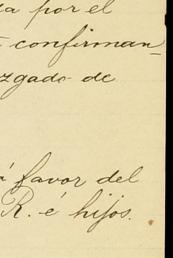 da por el
confirman-
zgado de
á favor del
R. é hijos.